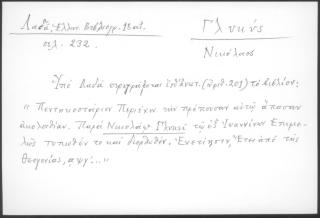 Λαδᾶ, Ἑλλην. Βιβλιογρ. 18 αἰ.
σελ. 232.
Γλυκύς
Νικόλαος
Ὑπὸ Λαδᾶ περιγράφεται (ἀριθ. 201) τὸ βιβλίον:
"Πεντηκοστάριον Περιέχον τὴν πρέπουσαν αὐτῷ ἅπασαν
ἀκολουθίαν. Παρὰ Νικολάῳ Γλυκεῖ τῷ ἐξ Ἰωαννίνων Ἐπιμε-
λῶς τυπωθέν τε καὶ διορθωθέν. Ἐνετίησιν, Ἔτει ἀπὸ τῆς
Θεογονίας, αψμγ΄..."